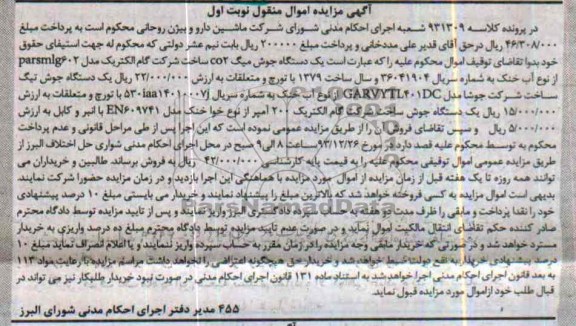 آگهی مزایده اموال منقول نوبت اول
در پرونده کلاسه ۹۳۱۳۰۹ شعبه اجرای احکام مدنی شورای شرکت ماشین دارو و بیژن روحانی محکوم است به پرداخت مبلغ
۴۶/۳۰۸/۰۰۰ ریال درحق آقای قدیر علی مددخانی و پرداخت مبلغ ۲۰۰۰۰۰ ریال بابت نیم عشر دولتی که محکوم له جهت استیفای حقوق
خود بدوا تقاضای توقیف اموال محکوم علیه را که عبارت است یک دستگاه جوش میگ co۲ ساخت شرکت گام الکتریک مدل parsmlg۶۰۲
از نوع آب خنک به شماره سریال ۳۶۰۴۱۹۰۴ و سال ساخت ۱۳۷۹ با تورچ و متعلقات به ارزش ۲۲/۰۰۰/۰۰۰ ریال یک دستگاه جوش تیگ
ساخت شرکت جوشا مدل GARVYTL۴۰۱DC از نوع آب خنک به شماره سریال ۵۳۰iaa۱۴۰۱۰۰۰۷j با تورچ و متعلقات به ارزش
۱۵/۰۰۰/۰۰۰ ریال یک دستگاه جوش ساخت شرکت گام الکتریک ۲۰۰ آمپر از نوع هوا خنک مدل EN۶۰۹۷۴۱ با انبر و کابل به ارزش
۵/۰۰۰/۰۰۰ ریال و سپس تقاضای فروش آن را از طریق مزایده عمومی نموده است که این اجرا پس از طی مراحل قانونی و عدم پرداخت
محکوم به توسط محکوم علیه قصد دارد در مورخ ۹۳/۱۲/۲۶ ساعت ۸ الی ۹ صبح در محل اجرای احکام مدنی شواری حل اختلاف البرز از
طریق مزایده عمومی اموال توقیفی محکوم علیه را به قیمت پایه کارشناسی ۴۲/۰۰۰/۰۰۰ ریال به فروش برساند. طالبین و خریداران می
توانند همه روزه تا یک هفته قبل از زمان مزایده از اموال مورد مزایده با هماهنگی این اجرا بازدید و در زمان مزایده حضورا شرکت نمایند.
بدیهی است اموال مزایده به کسی فروخته خواهد شد که بالاترین مبلغ را پیشنهاد نمایند و خریدار می بایستی مبلغ ۱۰ درصد پیشنهادی
خود را نقدا پرداخت و مابقی را ظرف مدت دو هفته به حساب سپرده دادگستری البرز واریز نمایند و پس از تایید مزایده توسط دادگاه محترم
صادر کننده حکم تقاضای انتقال مالکیت اموال نماید و در صورت عدم تایید مزایده توسط دادگاه محترم مبلغ ده درصد واریزی به خریدار
مسترد خواهد شد و در صورتی که خریدار مابقی وجه مزایده را در زمان مقرر به حساب سپرده واریز ننمایند و یا اعلام انصراف نماید مبلغ ۱۰
درصد پیشنهادی خریدار به نفع دولت ضبط خواهد شد و خریدار حق هیچگونه اعتراضی را نخواهد داشت مراسم مزایده با رعایت مواد ۱۱۳
به بعد قانون اجرای احکام مدنی اجرا خواهد شد به استناد ماده ۱۳۱ قانون اجرای احکام مدنی در صورت نبود خریدار طلبکار نیز می تواند در
قبال طلب خود از اموال مورد مزایده قبول نماید.
۴۵۵ مدیر دفتر اجرای احکام مدنی شورای البرز